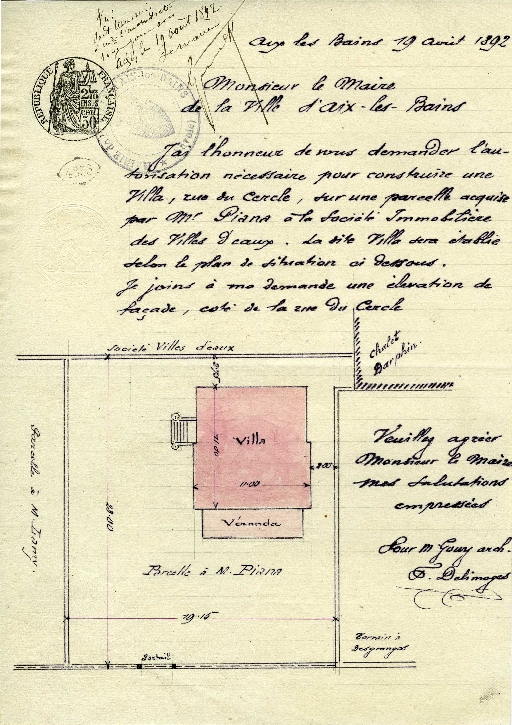 Aix les Bains 19 avril 1892
19 août 1892
RÉPUBLIQUE FRANÇAISE
Monsieur le Maire
de la Ville d'Aix-les-Bains
J'ai l'honneur de vous demander l'au-
torisation nécessaire pour construire une
Villa, rue du Cercle, sur une parcelle acquise
par Mr Piana à la Société Immobilière
des Villes d'eaux. La dite Villa sera établie
selon le plan de situation ci dessous.
Je joins à ma demande une élevation de
façade, coté de la rue du Cercle
Société Villes d'eaux
Chalet
Darphin.
Villa
11.00
2.00
Véranda
28.00
Veuillez agréer
Monsieur le Maire
mes salutations
empressées
Pour M Gouy arch.
F. Delimoges
Parcelle à M.
Parcelle à M. Piana
19.15
Portail
Terrain à
Desgranges